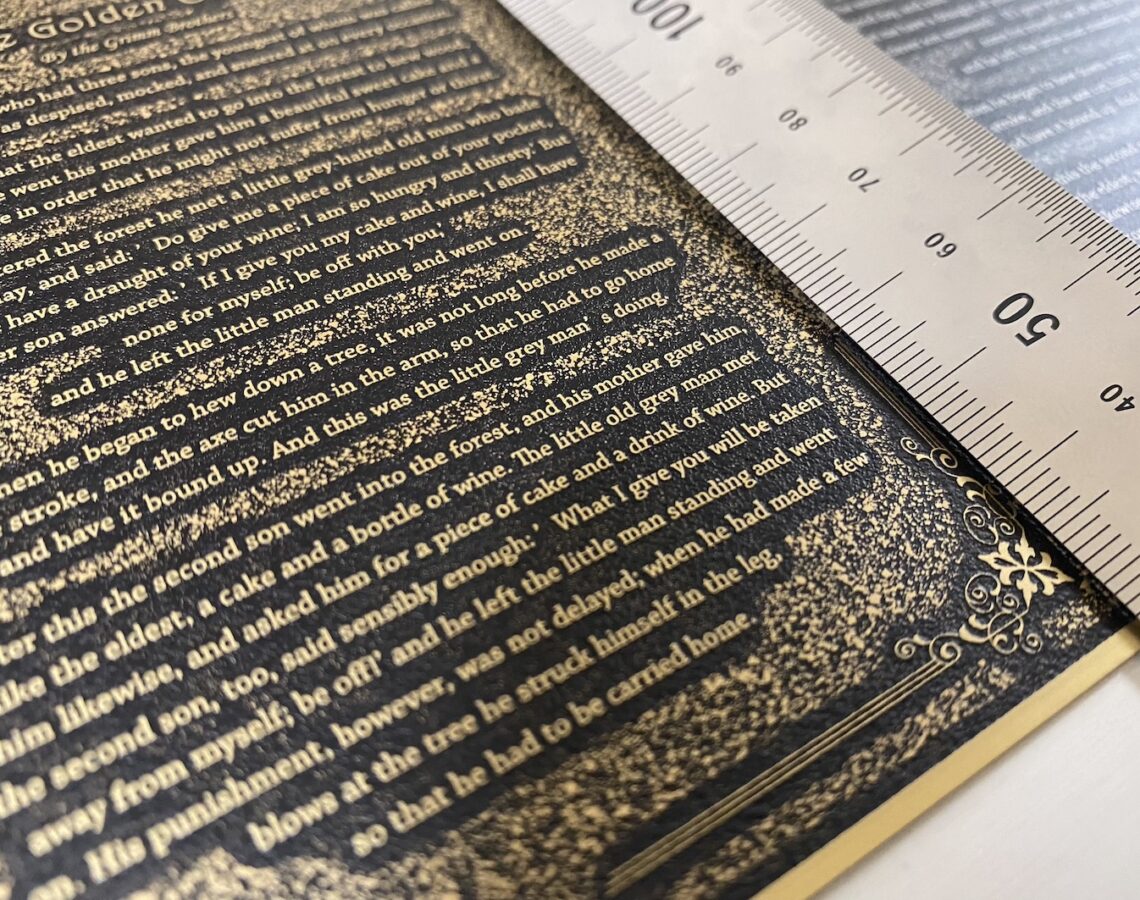 Golden
By the Grimm Brothers
who had three sons, the youngest of whom was
as despised, mocked, and sneered at on every occasion.
at the eldest wanted to go into the forest to hew
went his mother gave him a beautiful sweet cake and a
in order that he might not suffer from hunger or thirst.
the forest he met a little grey-haired old man who bade
and said:' Do give me a piece of cake out of your pocket
have a draught of your wine; I am so hungry and thirsty.' But
son answered:' If I give you my cake and wine, I shall have
none for myself; be off with you,'
and he left the little man standing and went on.
he began to hew down a tree, it was not long before he made a
stroke, and the axe cut him in the arm, so that he had to go home
and have it bound up. And this was the little grey man' s doing.
this the second son went into the forest, and his mother gave him,
like the eldest, a cake and a bottle of wine. The little old grey man met
him likewise, and asked him for a piece of cake and a drink of wine. But
the second son, too, said sensibly enough:' What I give you will be taken
away from myself; be off!' and he left the little man standing and went
on. His punishment, however, was not delayed; when he had made a few
blows at the tree he struck himself in the leg,
so that he had to be carried home.
100
90
80
70
60
50
40